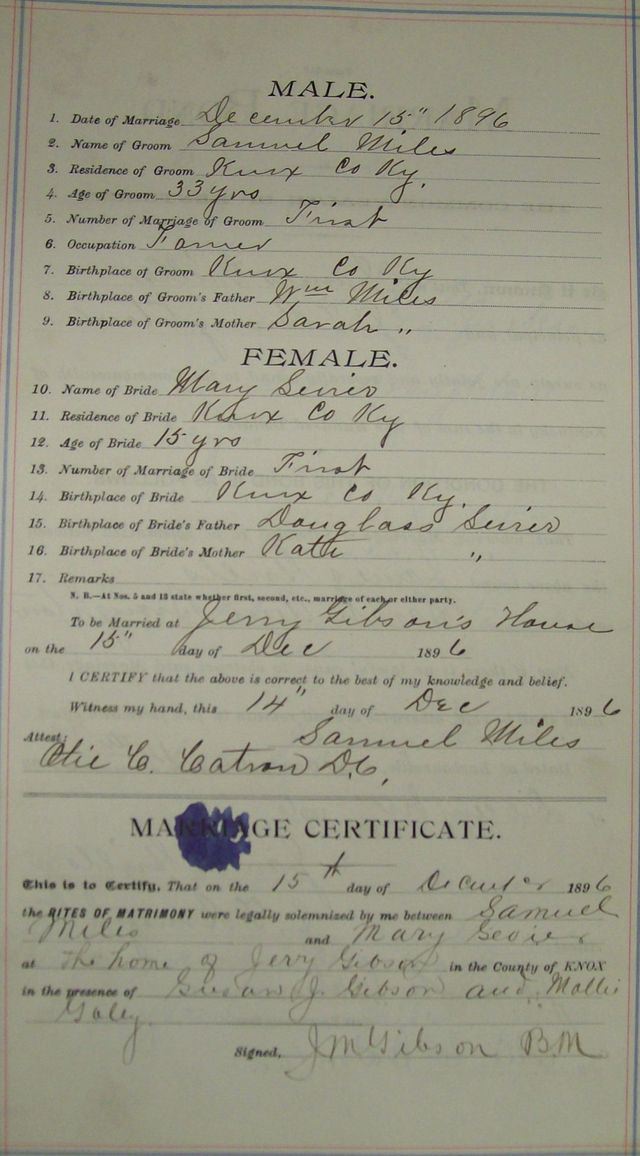 MALE.
1. Date of Marriage December 15" 1896
2. Name of Groom Samuel Miles
3. Residence of Groom Knox Co Ky.
4. Age of Groom 33 yrs
5. Number of Marriage of Groom First
6. Occupation Farmer
7. Birthplace of Groom Knox Co Ky
8. Birthplace of Groom's Father Wm Miles
9. Birthplace of Groom's Mother Sarah "
FEMALE.
10. Name of Bride Mary Sevier
11. Residence of Bride Knox Co Ky
12. Age of Bride 15 yrs
13. Number of Marriage of Bride First
14. Birthplace of Bride Knox Co Ky.
15. Birthplace of Bride's Father Douglass Sevier
16. Birthplace of Bride's Mother Kate "
17. Remarks
N. B.—At Nos. 5 and 13 state whether first, second, etc., marriage of each or either party.
To be Married at Jerry Gibson's House
on the 15" day of Dec 1896
I CERTIFY that the above is correct to the best of my knowledge and belief.
Witness my hand, this 14" day of Dec 1896
Samuel Miles
Attest:
C. Catron D.C.
MARRIAGE CERTIFICATE.
This is to Certify, That on the 15th day of December 1896
the RITES OF MATRIMONY were legally solemnized by me between Samuel
Miles and Mary Sevier
at the home of Jerry Gibson in the County of KNOX
in the presence of Susan J. Gibson and Mollie
Signed, J M Gibson B.M